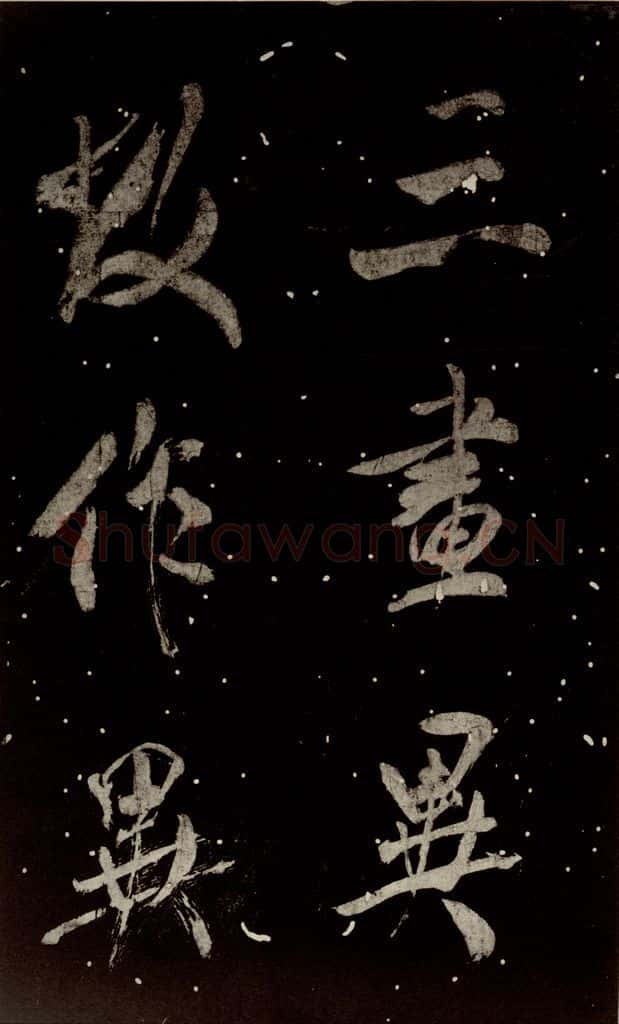 三畫異
故作異
Shufawang.CN